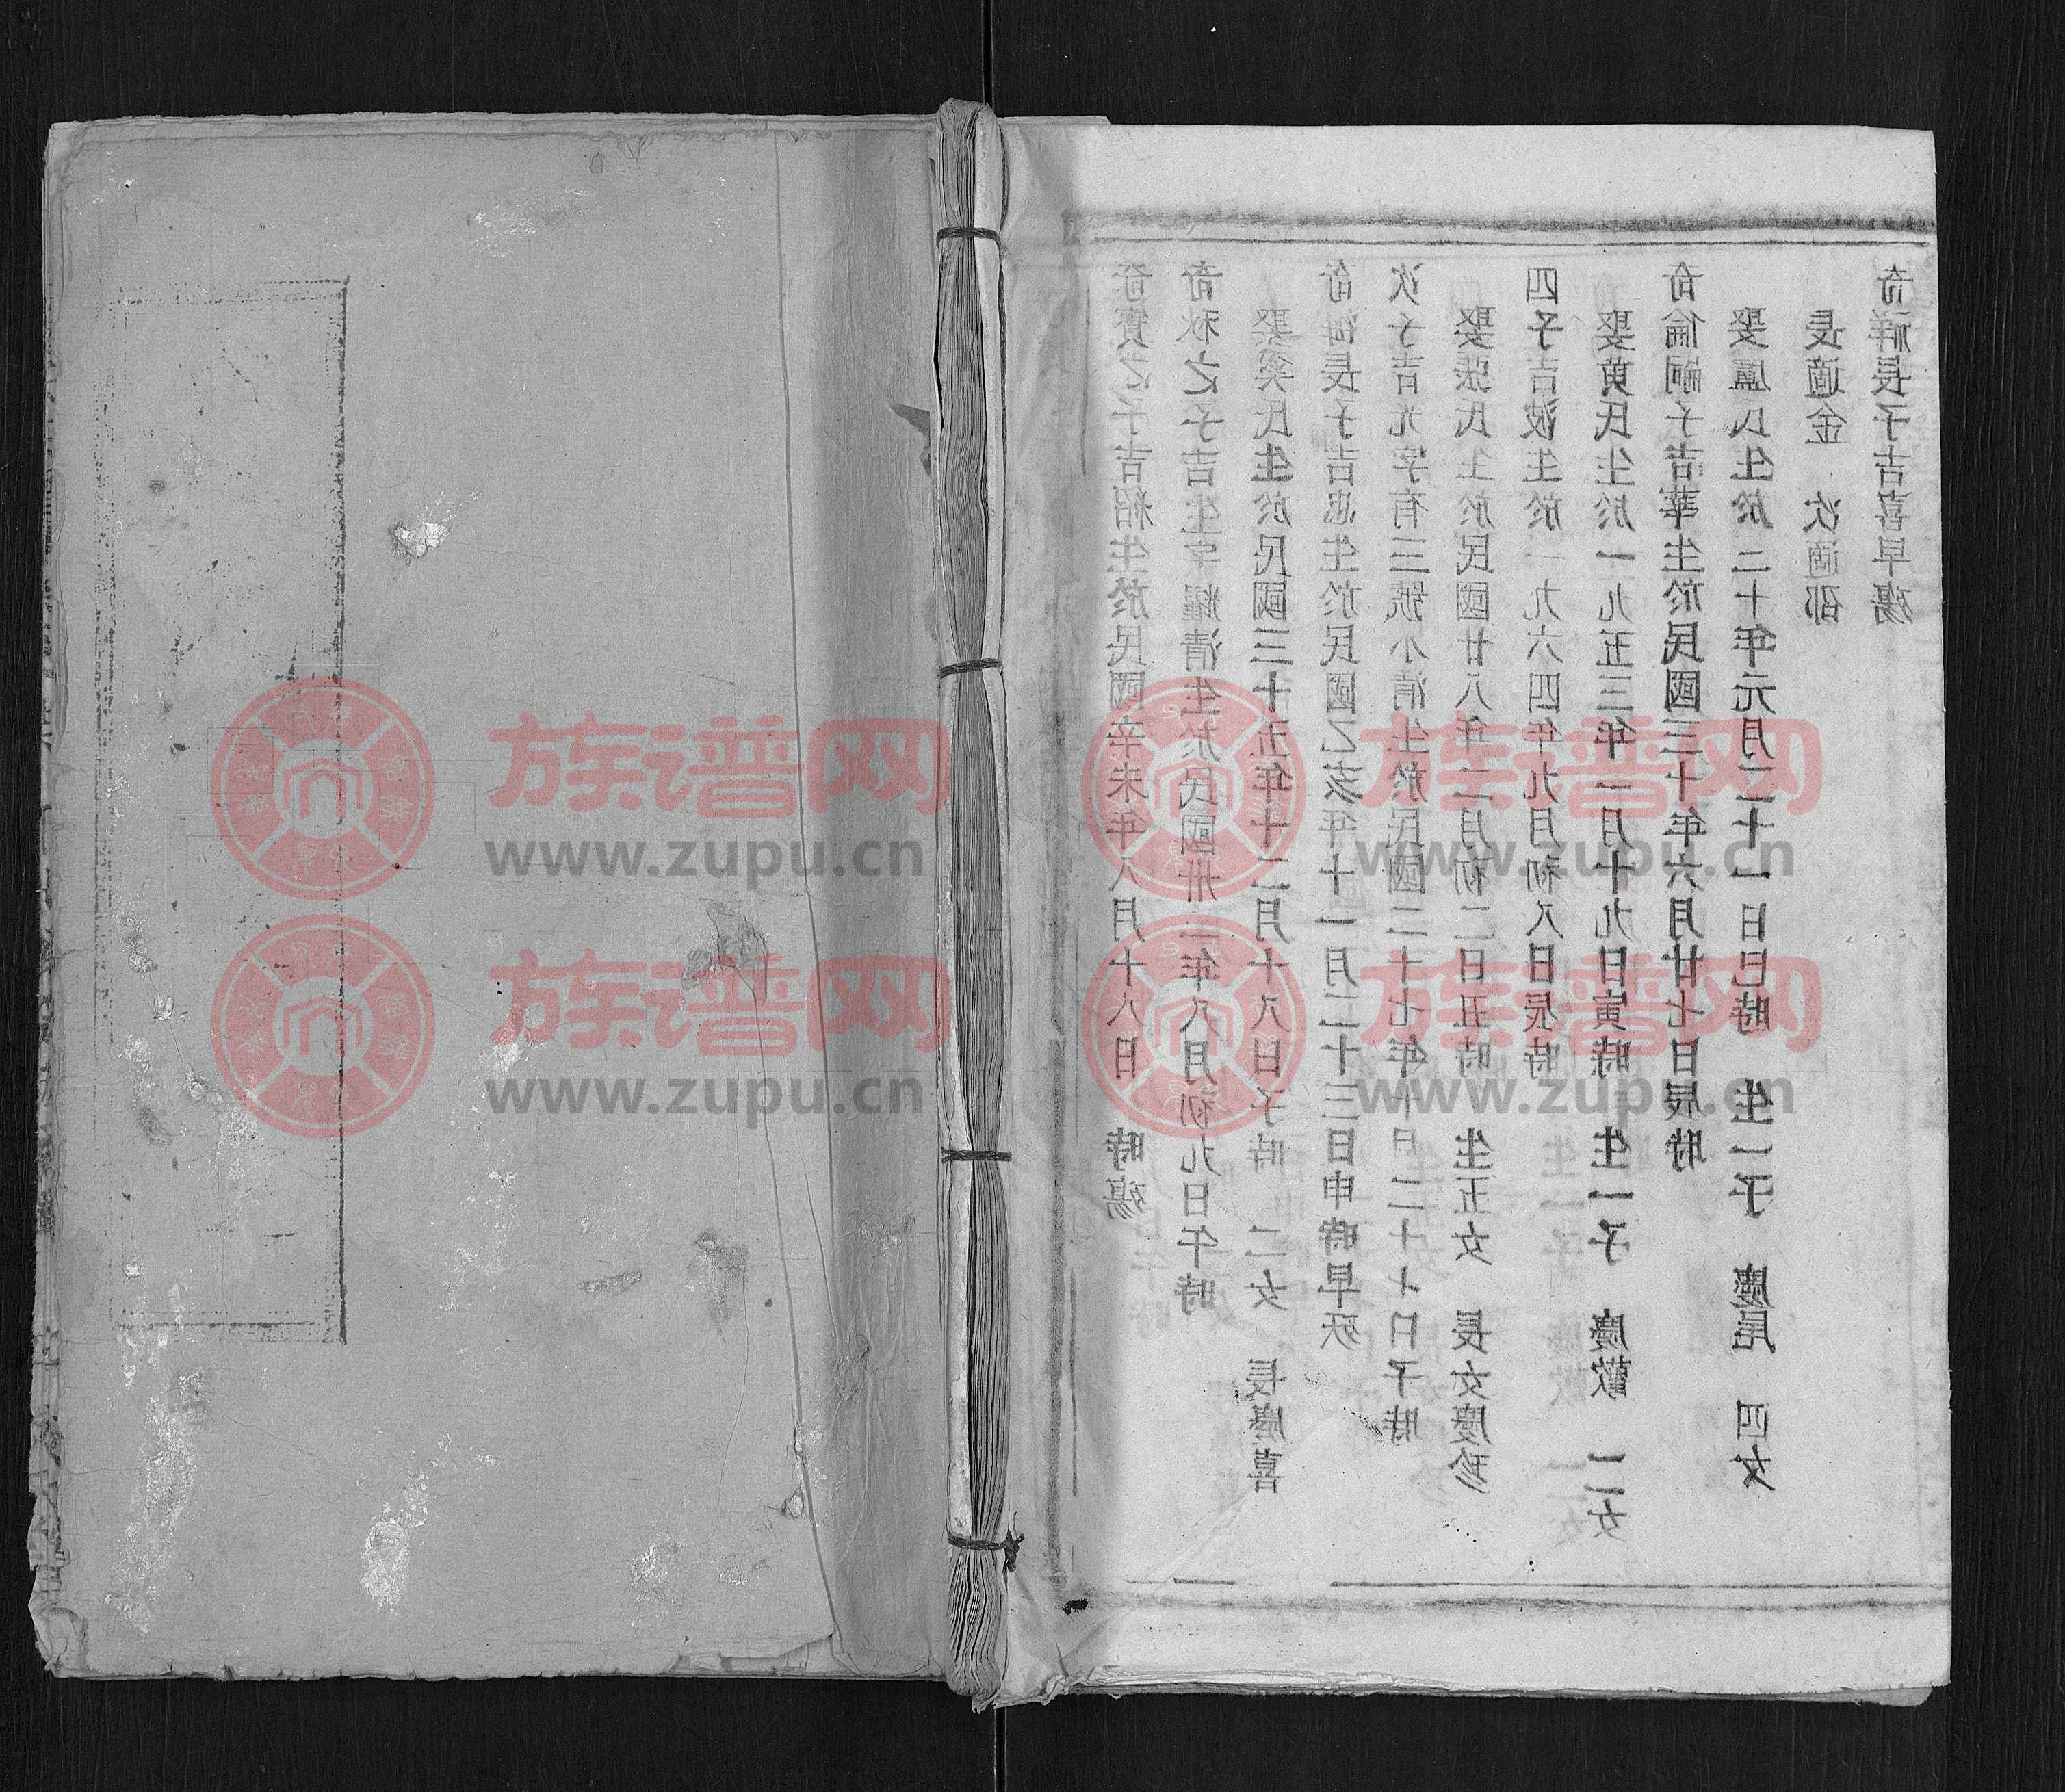 奇寶之子吉紹生於民國辛未年八月十八日 時殤
奇秋之子吉生字耀清生於民國卅二年八月初九日午時
娶奚氏生於民國三十五年十二月十八日子時 二女 長慶喜
奇海長子吉忠生於民國乙亥年十一月二十三日申時早殀
次子吉光字有三號小清生於民國二十七年十月二十七日子時
娶張氏生於民國廿八年二月初二日丑時 生五女 長女慶珍
四子吉波生於一九六四年九月初八日辰時
娶黄氏生於一九五三年二月十九日寅時 生一子 慶歡 二女
奇倫嗣子吉華生於民國三十年六月廿七日辰時
娶盧氏生於二十年元月二十一日巳時 生一子 慶尾 四女
長適金 次適邵
奇祥長子吉喜早殤
族谱网
www.zupu.cn
族谱网
www.zupu.cn
族谱网
www.zupu.cn
族谱网
www.zupu.cn